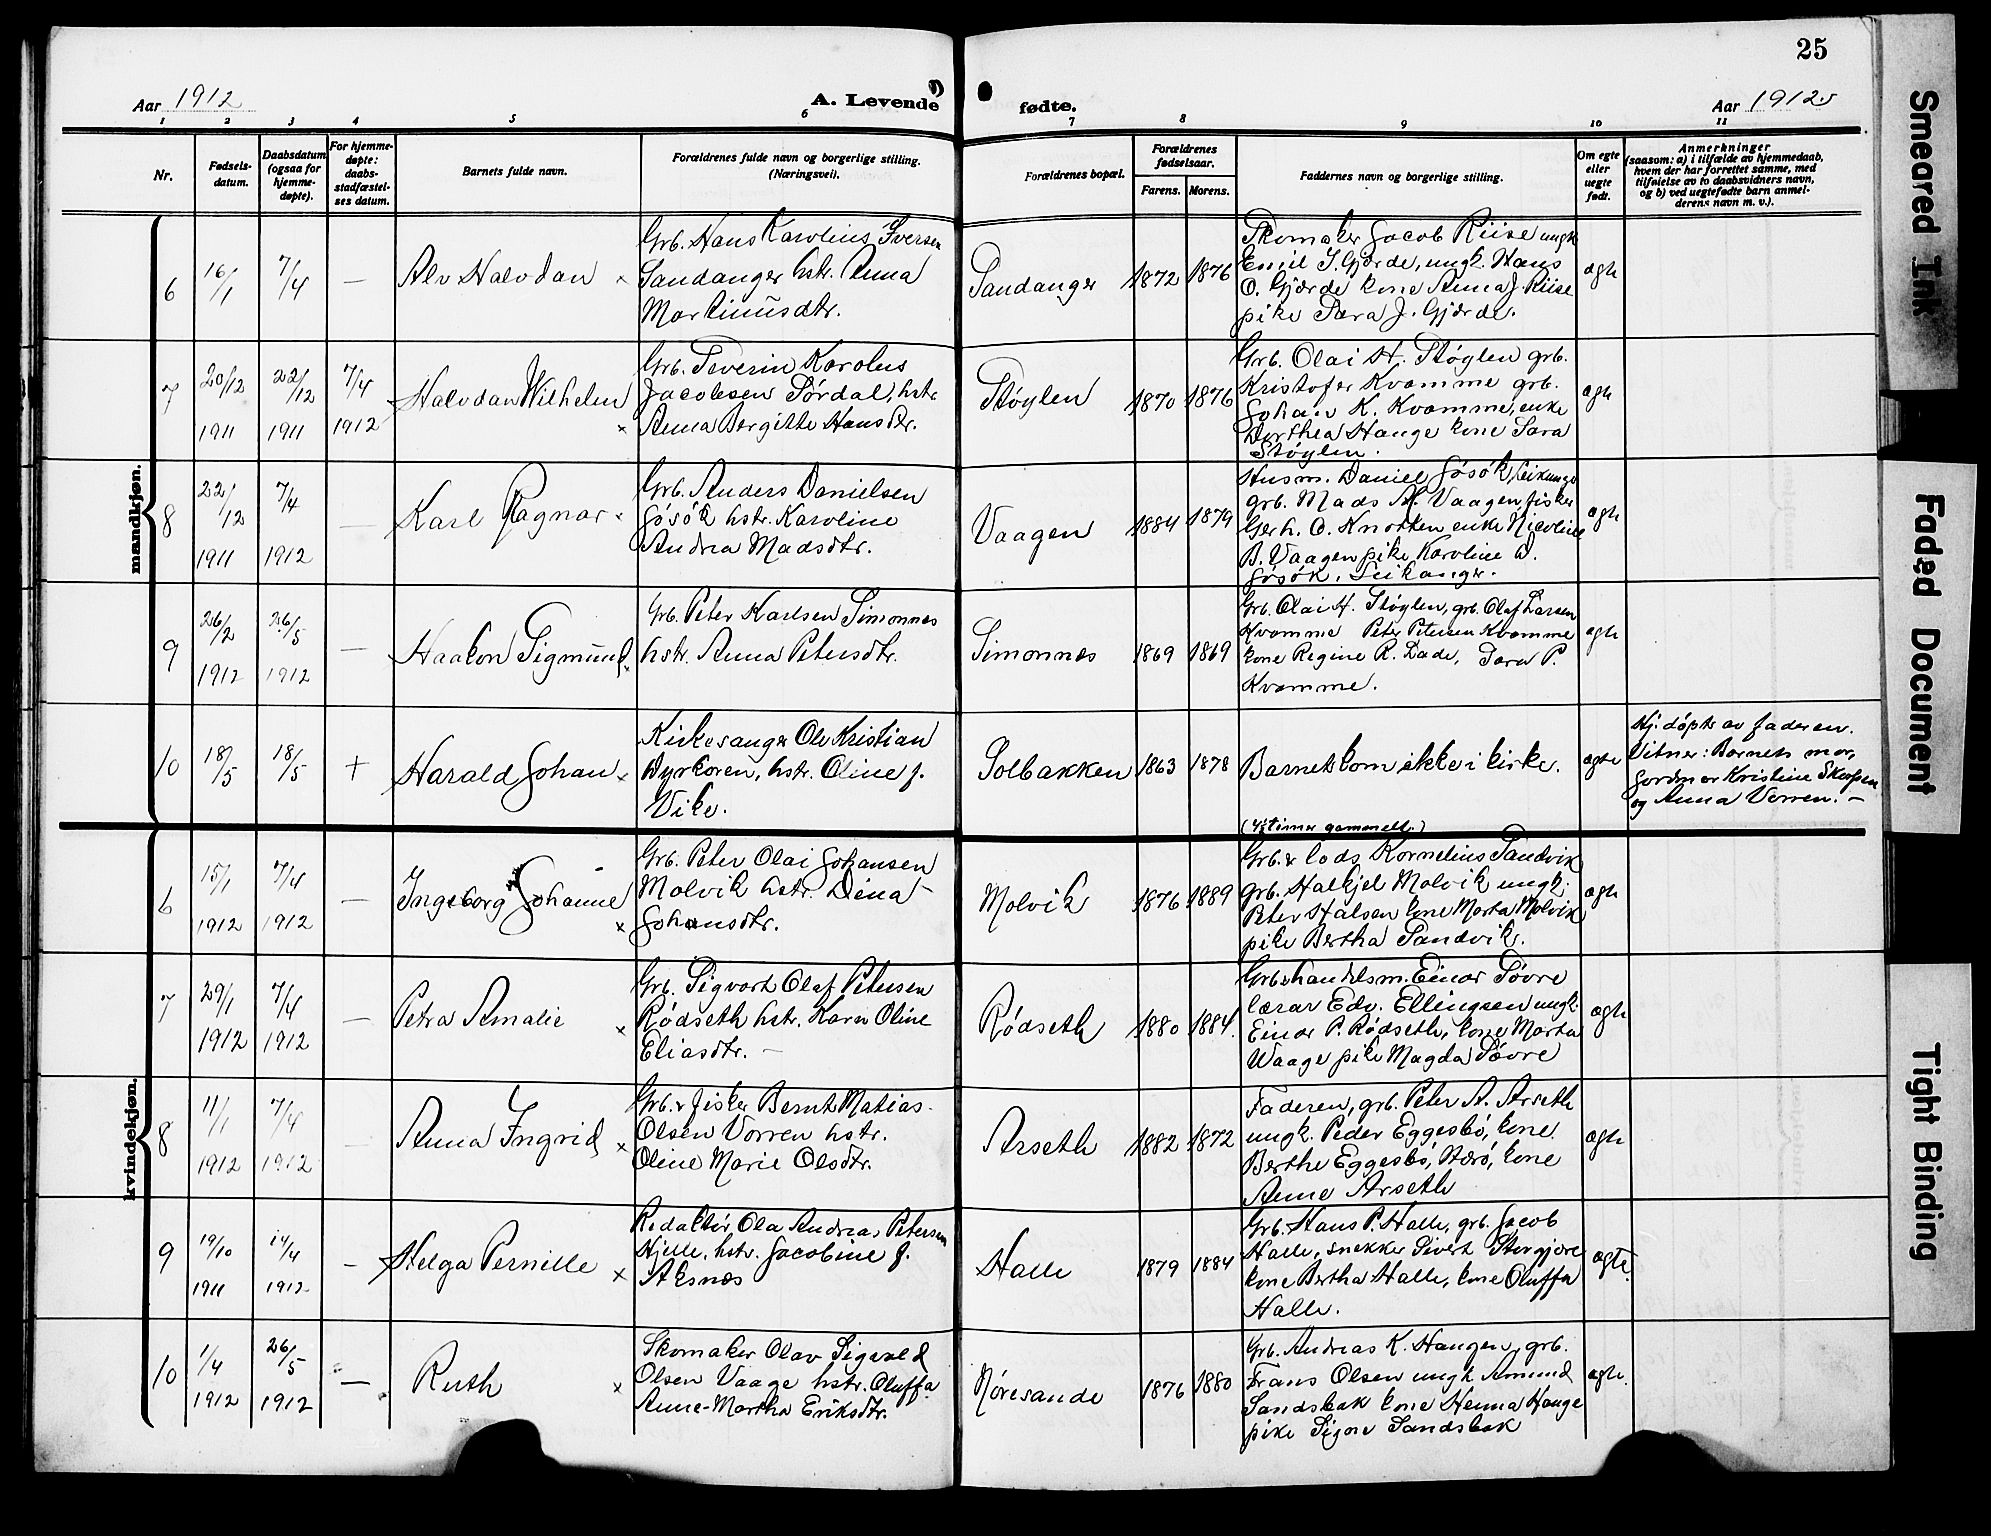 25
Aar 1912
A. Levende
fødte.
Aar 1912
1 2 3 4 5 6 7 8 9 10 11
Nr.
Fødsels-
datum.
Daabsdatum
(ogsaa for
hjemme-
døpte).
For hjemme-
døpte:
daabs-
stadfæstel-
ses datum.
Barnets fulde navn.
Forældrenes fulde navn og borgerlige stilling.
(Næringsvei).
Forældrenes bopæl.
Forældrenes
fødselsaar.
Farens. Morens.
Faddernes navn og borgerlige stilling.
Om egte
eller
uegte
født.
Anmerkninger
(saasom: a) i tilfælde av hjemmedaab,
hvem der har forrettet samme, med
tilføielse av to daabsvidners navn,
og b) ved uegtefødte barn anmel-
derens navn m. v.).
mandkjøn.
6
16/1
7/4
—
Alv Halvdan ×
Grb. Hans Karolius Iversen
Sandanger hstr. Anna
Martinusdtr.
Sandanger
1872
1876
Skomaker Jacob Riise ungk
Emil S. Gjærde, ungk. Hans
O. Gjærde kone Anna J. Riise
pike Sara J. Gjærde.
ægte
7
20/12
1911
22/12
1911
7/4
1912
Halvdan Wilhelm ×
Grb. Severin Karolus
Jacobsen Sørdal, hstr
Anna Bergitte Hansdtr.
Støylen
1870
1876
Grb. Olai H. Støylen grb.
Kristofer Kvamme grb.
Johan K. Kvamme, enke
Dorthea Hauge kone Sara
Støylen.
ægte
8
22/12
1911
7/4
1912
—
Karl Ragnar ×
Grb. Anders Danielsen
Jøsøk hstr. Karoline
Andrea Madsdtr.
Vaagen
1884
1879
Husm. Daniel Jøsøk, Leikange
grb. Mads M. Vaagen fisker
Gerh. O. Knotten enke Nicoline
B. Vaagen pike Karoline D.
Jøsøk, Leikanger.
ægte
9
26/2
1912
26/5
1912
—
Haakon Sigmund ×
Grb. Peter Karlsen Simonnes
hstr. Anna Petersdtr.
Simonnes
1869
1869
Grb. Olai H. Støylen, grb. Olaf Larsen
Kvamme Peter Petersen Kvamme
kone Regine R. Dade, Sara P.
Kvamme.
ægte
10
18/5
18/5
+
Harald Johan ×
Kirkesanger Ole Kristian
Dyrkoren, hstr. Oline f.
Vike.
Solbakken
1863
1878
Barnet kom ikke i kirke.
(4½ timer gammelt.)
ægte
Hj. døpt av faderen.
Vitner: Barnets mor,
Jordmor Kristine Skorpen
og Anna Vorren. —
kvindekjøn.
6
15/1
1912
7/4
1912
—
Ingeborg Johanne ×
Grb. Peter Olai Johansen
Molvik hstr. Dina
Johansdtr.
Molvik
1876
1889
Grb. & lods Kornelius Sandvik
grb. Halkjel Molvik ungk.
Peter Halsen kone Marta Molvik
pike Bertha Sandvik.
ægte
7
29/1
1912
7/4
1912
—
Petra Amalie ×
Grb. Sigvart Olaf Petersen
Rødseth hstr. Karen Oline
Eliasdtr. —
Rødseth
1880
1884.
Grb. & handelsm. Einar Søvre
lærar Edv. Ellingsen ungk.
Einar P. Rødseth, kone Marta
Waage pike Magda Søvre
ægte
8
11/1
1912
7/4
1912
—
Anna Ingrid ×
Grb. & fisker Bernt Matias
Olsen Vorren hstr.
Oline Marie Olsdtr.
Arseth
1882
1872
Faderen, grb. Peter A. Arseth
ungk. Peder Eggesbø, kone
Berthe Eggesbø, Herø, kone
Anne Arseth
ægte
9
19/10
1911
14/4
1912
-
Helga Pernille ×
Redaktør Ola Andreas Petersen
Hjelle, hstr. Jacobine f.
Aksnes
Halle
1879
1884
Grb. Hans P. Halle, grb. Jacob
Halle, snekker Sivert Storgjøre
kone Bertha Halle, kone Oluffa
Halle.
ægte.
10
1/4
1912
26/5
1912
—
Ruth ×
Skomaker Olav Sigvald
Olsen Vaage hstr. Oluffa
Anne-Martha Eriksdtr.
Nøresande
1876
1880
Grb. Andreas K. Haugen, grb.
Frans Olsen ungk Amund
Sandsbak kone Henna Hauge
pike Signe Sandsbak
ægte.
Smeared Ink
Faded Document
Tight Binding